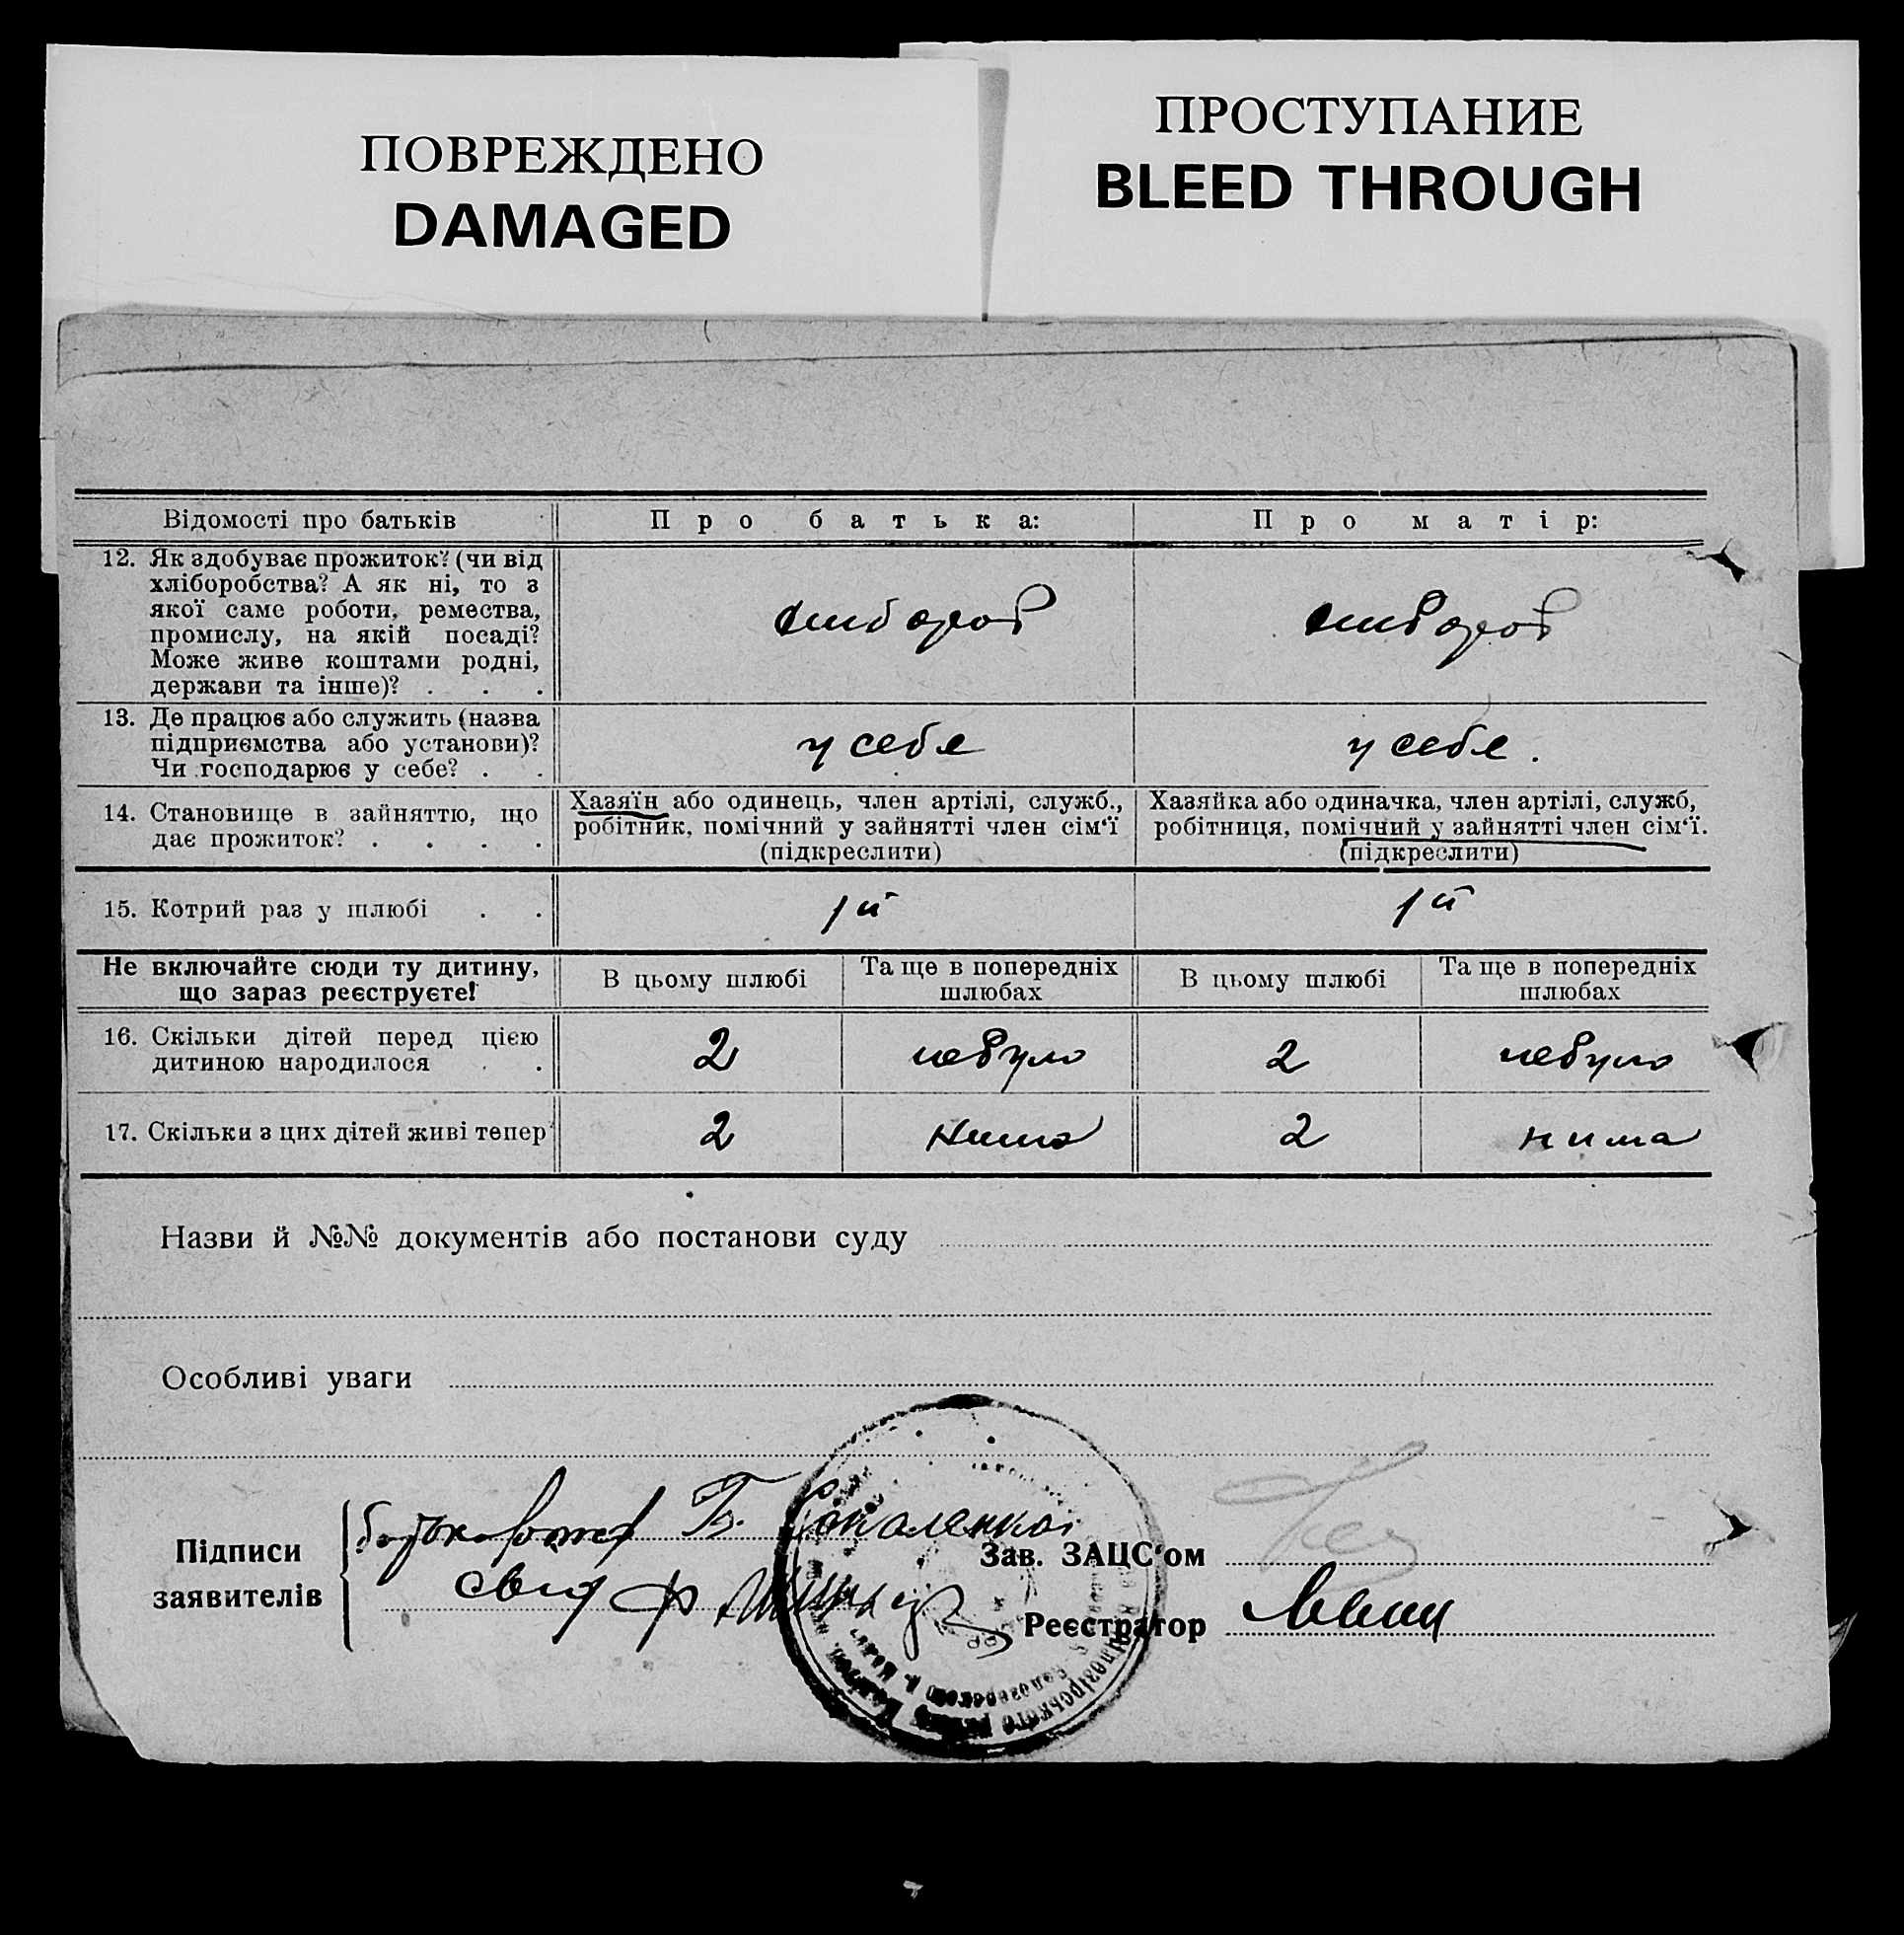 ПОВРЕЖДЕНО
DAMAGED
ПРОСТУПАНИЕ
BLEED THROUGH
Відомості про батьків
Про батька:
Про матір:
12. Як здобуває прожиток? (чи від
хліборобства? А як ні, то з
якої саме роботи, ремества,
промислу, на якій посаді?
Може живе коштами родні,
держави та інше)? . . .
13. Де працює або служить (назва
підприємства або установи)?
Чи господарює у себе? . .
у себе
у себе.
14. Становище в зайняттю, що
дає прожиток? . . . .
Хазяїн або одинець, член артілі, служб.,
робітник, помічний у зайнятті член сім‘ї
(підкреслити)
Хазяйка або одиначка, член артілі, служб,
робітниця, помічний у зайнятті член сім‘ї.
(підкреслити)
15. Котрий раз у шлюбі . .
1й
1й
Не включайте сюди ту дитину,
що зараз реєструєте!
В цьому шлюбі
Та ще в попередніх
шлюбах
В цьому шлюбі
Та ще в попередніх
шлюбах
16. Скільки дітей перед цією
дитиною народилося . .
2
небуло
2
небуло
17. Скільки з цих дітей живі тепер
2
нима
2
нима
Назви й №№ документів або постанови суду
Особливі уваги
Підписи
заявителів
Зав. ЗАЦС‘ом
Реєстратор